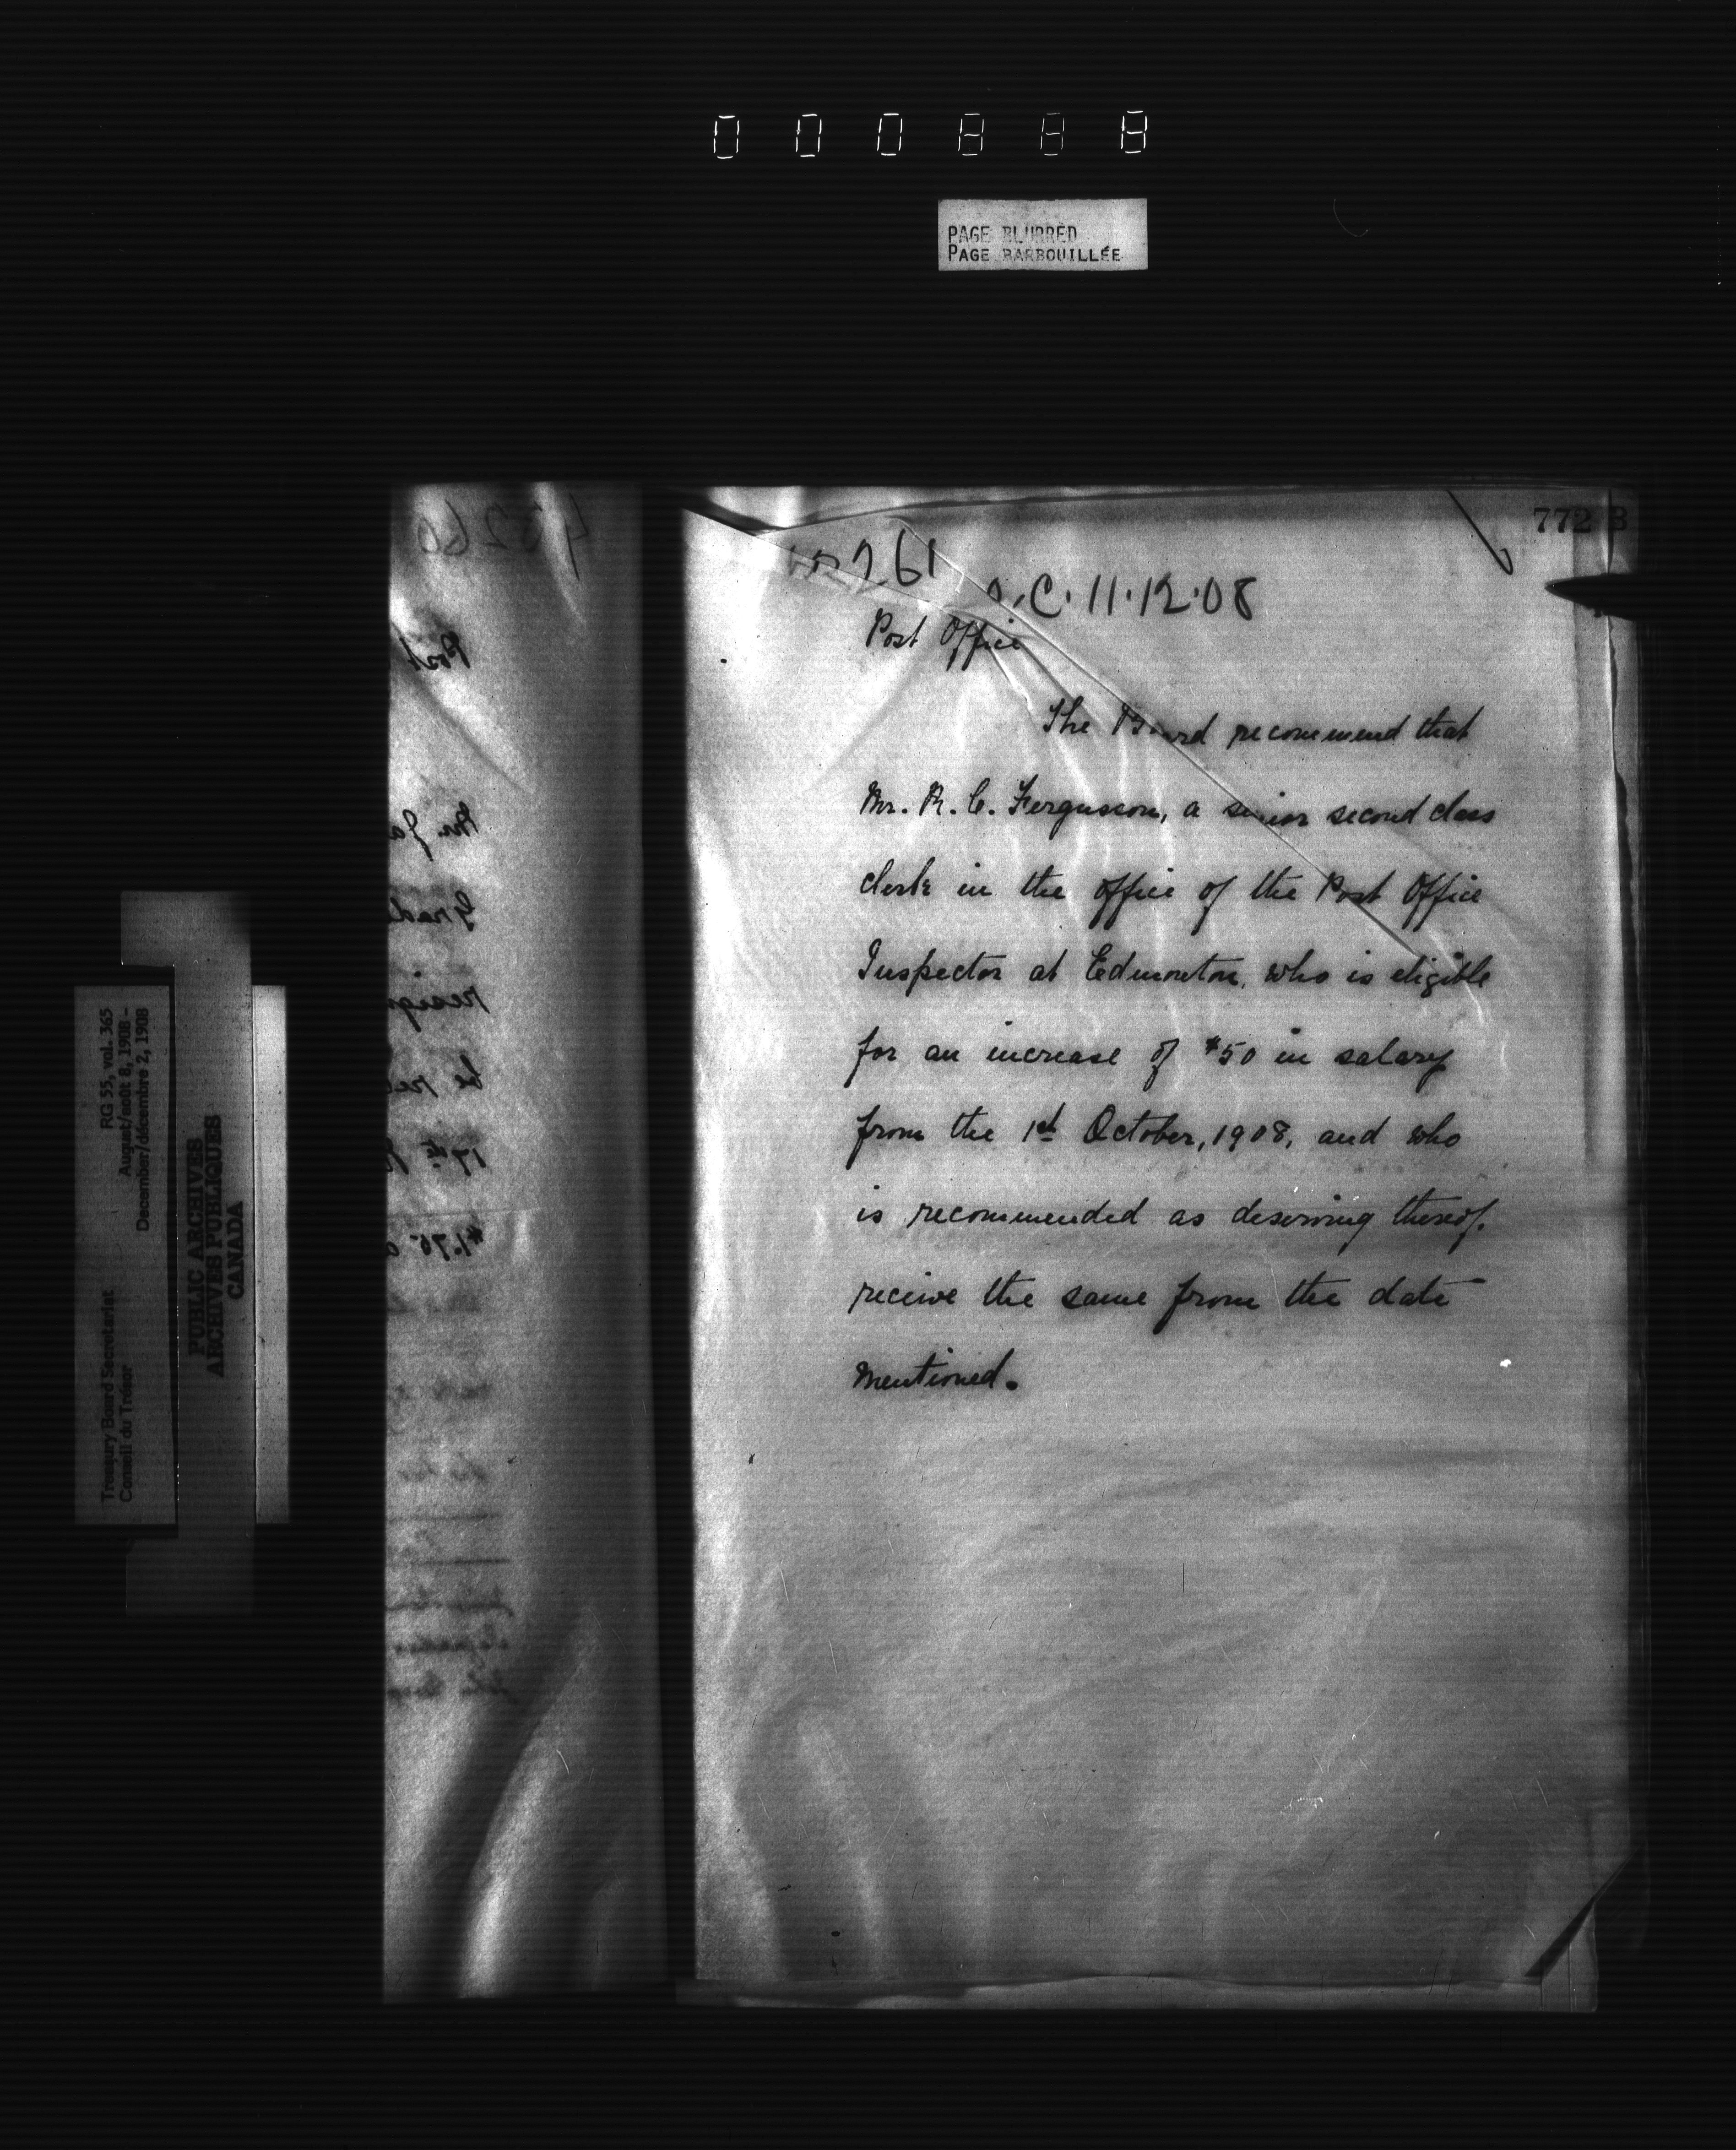 PAGE BLURRED
PAGE BARBOUILLÉE
772
O.C. 11.12.08
Post Office
The Board recommend that
Mr. R. C. Fergusson, a senior second class
clerk in the office of the Post Office
Inspector at Edmonton, who is eligible
for an increase of $50 in salary
from the 1st October, 1908, and who
is recommended as deserving thereof,
receive the same from the date
mentioned.
45260
Post
Mr. Ja
Grad
resign
be re
17th
$1.75 a
Treasury Board Secretariat RG 55, vol. 365
Conseil du Trésor August/août 8, 1908 -
December/décembre 2, 1908
PUBLIC ARCHIVES
ARCHIVES PUBLIQUES
CANADA